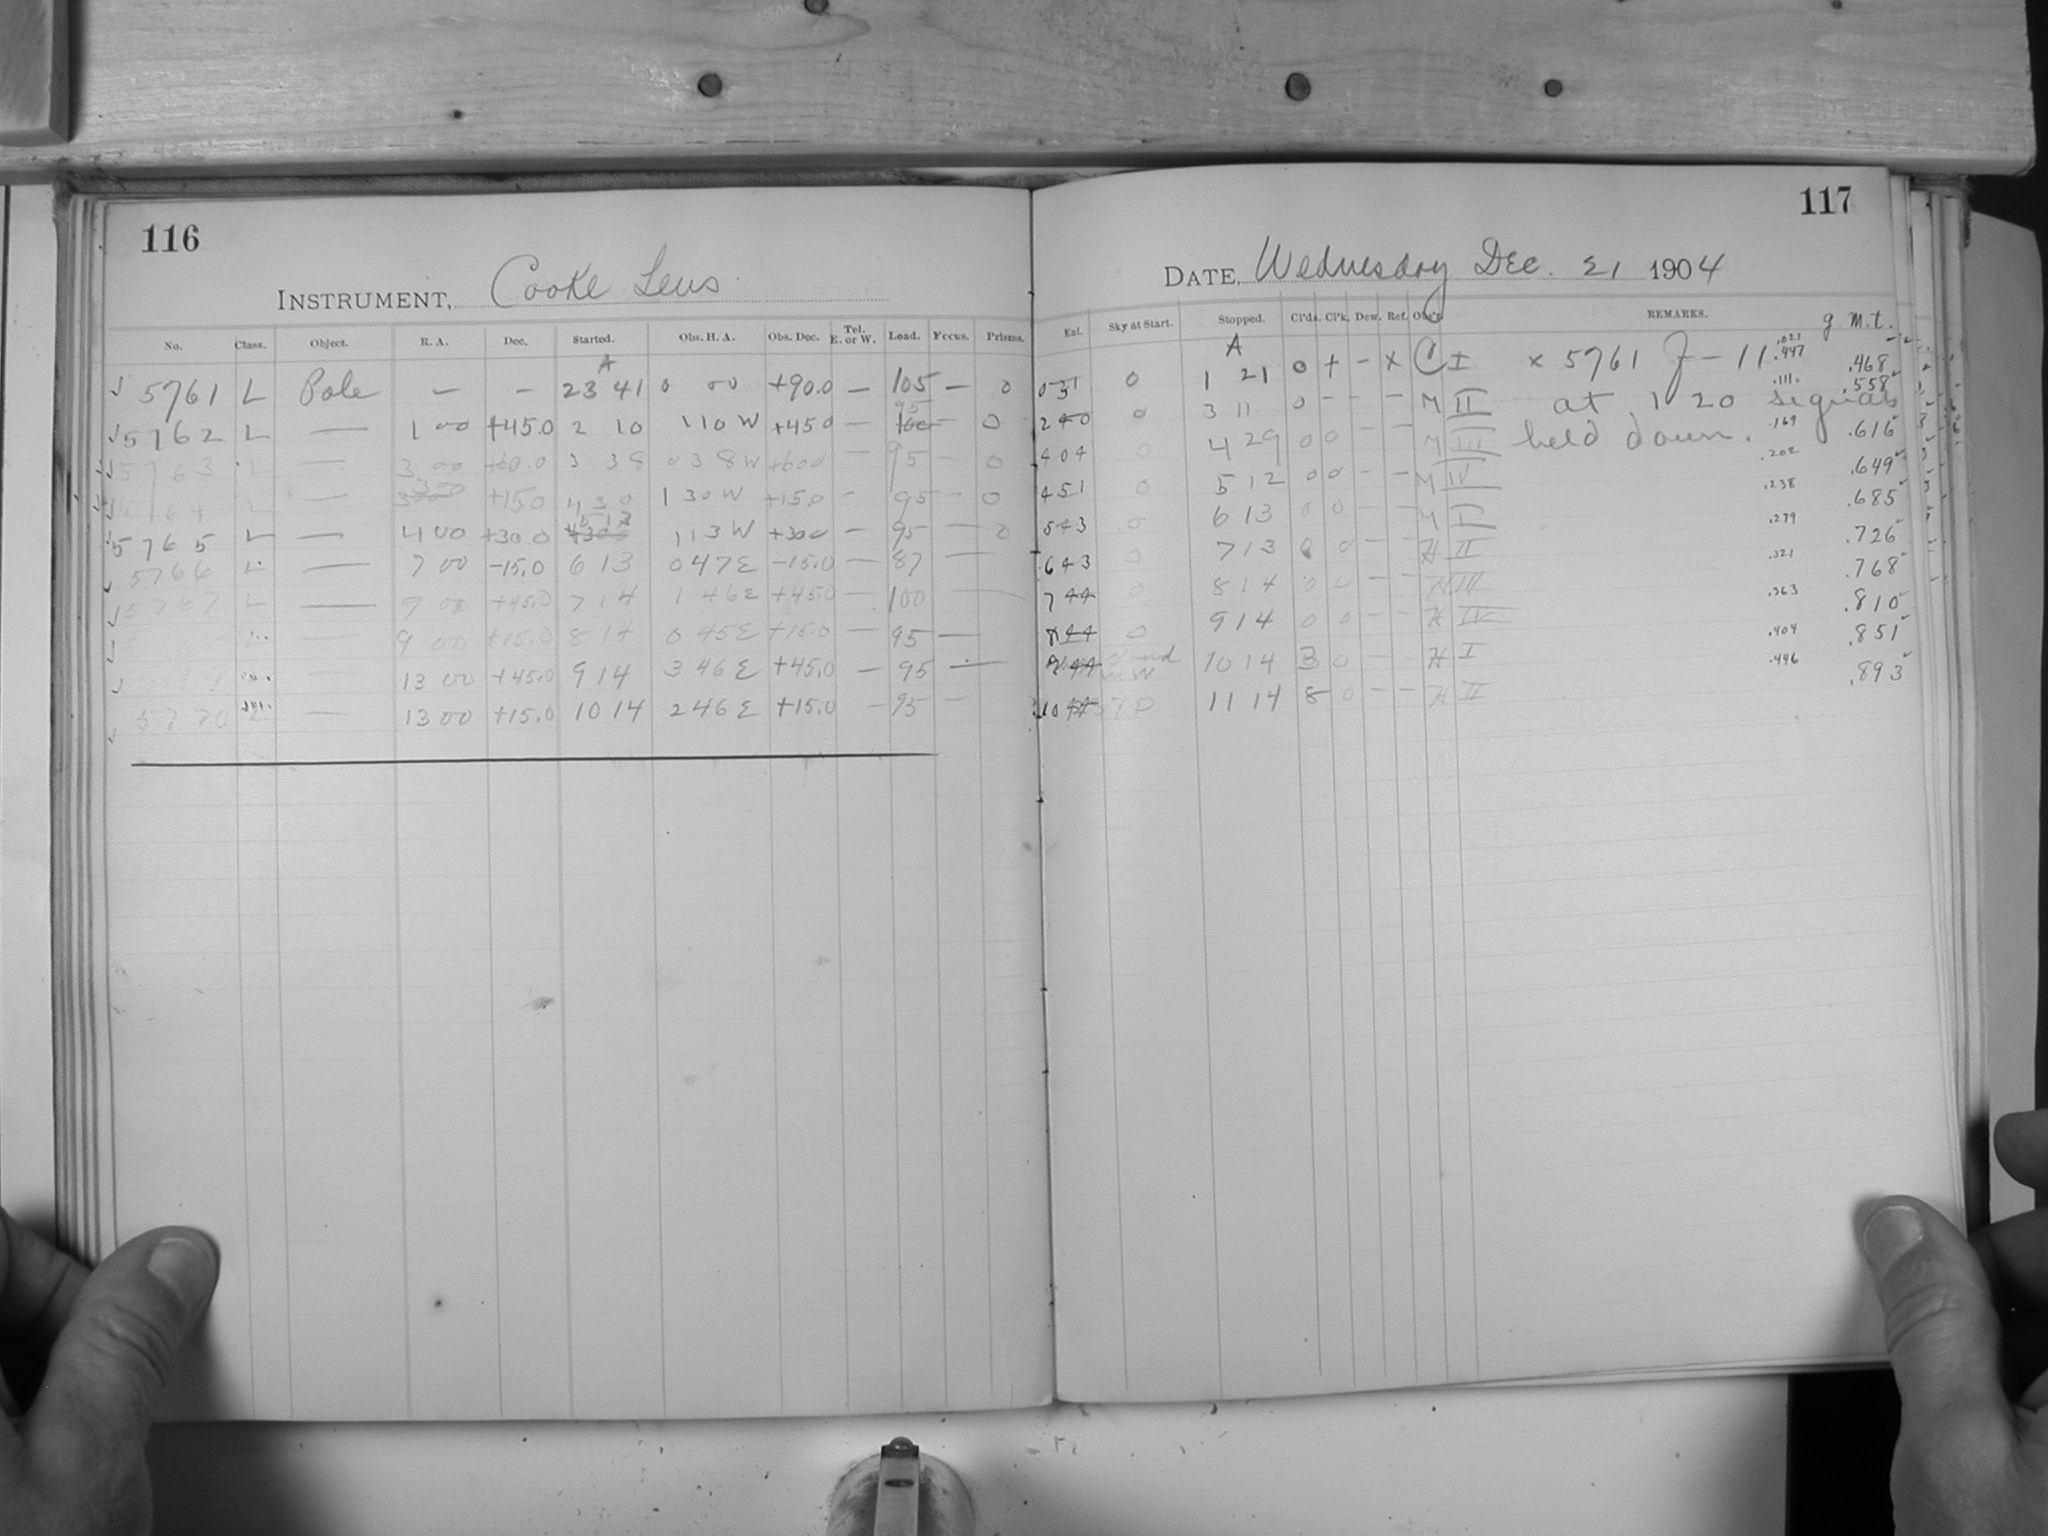 116
INSTRUMENT, Cooke Lens
No. Class. Object. R. A. Dec. Started. Obs. H. A. Obs. Dec. Tel. E. or W. Load. Focus. Prisms.
A
5761 L Pole — — 23 41 0 00 +90.0 — 105 — 0
95
5762 L — 1 00 +45.0 2 10 1 10 W +45.0 — 100 — 0
5763 L — 3 00 +60.0 3 38 0 38 W +60.0 — 95 — 0
3 00
5764 L — +15.0 4 30 1 30 W +15.0 — 95 — 0
5 13
5765 L — 4 00 +30.0 1 13 W +30.0 — 95 — 0
5766 L — 7 00 -15.0 6 13 0 47 E -15.0 — 87 —
5767 L — 9 00 +45.0 7 14 1 46 E +45.0 — 100
L — 9 00 +15.0 8 14 0 45 E +15.0 — 95 —
— 13 00 +45.0 9 14 3 46 E +45.0 — 95 —
5770 L — 13 00 +15.0 10 14 2 46 E +15.0 — 95 —
117
DATE, Wednesday Dec. 21 1904
Exl. Sky at Start. Stopped. Cl'ds. Cl'k. Dew. Ref. Obs'r. REMARKS. g. m. t.
A
0 31 0 1 21 0 + - x C I x 5761 J - 11 .021 .447 .468
2 40 0 3 11 0 - - - M II at 1 20 signals .111 .558
4 04 0 4 29 0 0 - - M III held down. .169 .616
4 51 0 5 12 0 0 - - M IV .202 .649
5 43 0 6 13 0 0 - - M I .238 .685
6 43 0 7 13 0 0 - - H II .279 .726
7 44 0 8 14 0 0 - - H III .321 .768
8 44 0 9 14 0 0 - - H IV .363 .810
9 44 10 14 3 0 - - H I .404 .851
10 44 11 14 8 0 - - H II .446 .893